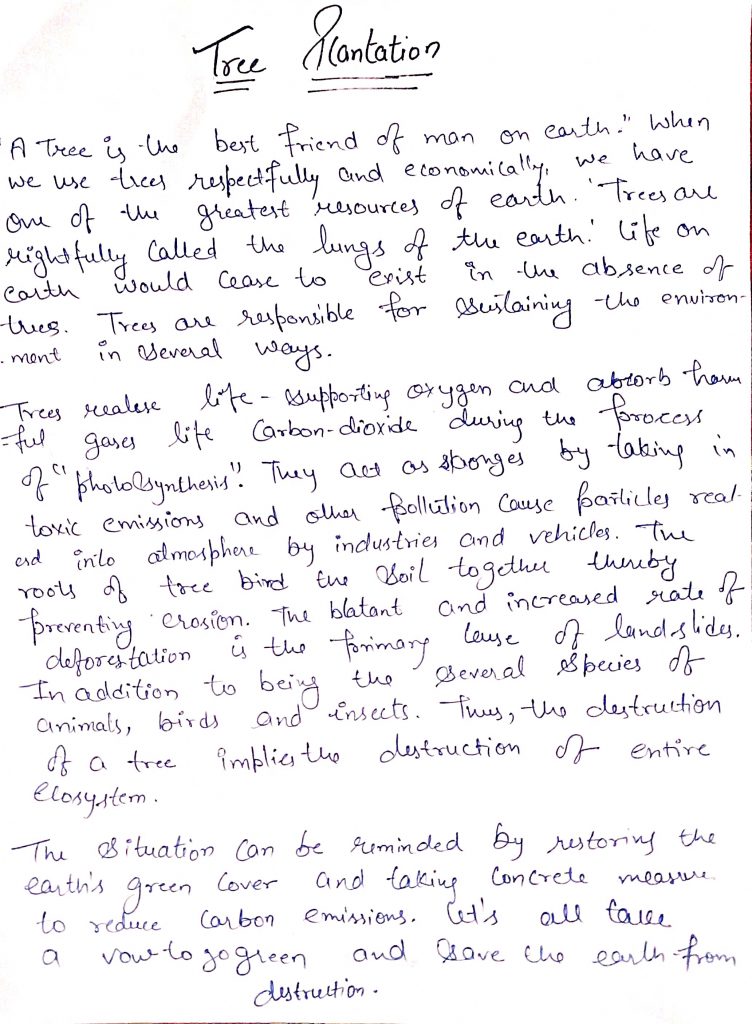 Tree Plantation
"A Tree is the best friend of man on earth." When
we use trees respectfully and economically, we have
one of the greatest resources of earth. 'Trees are
rightfully called the lungs of the earth.' life on
earth would cease to exist in the absence of
trees. Trees are responsible for sustaining the environ-
-ment in several ways.
Trees realese life-supporting oxygen and abzorb harm
=ful gases life Carbon-dioxide during the process
of "photosynthesis". They act as sponges by taking in
toxic emissions and other pollution cause particles real-
esd into atmosphere by industries and vehicles. The
roots of tree bind the soil together thereby
preventing erosion. The blatant and increased rate of
deforestation is the primary cause of landslides.
In addition to being the several species of
animals, birds and insects. Thus, the destruction
of a tree implies the destruction of entire
ecosystem.
The situation can be reminded by restoring the
earth's green cover and taking concrete measure
to reduce carbon emissions. let's all take
a vow to go green and save the earth from
destruction.